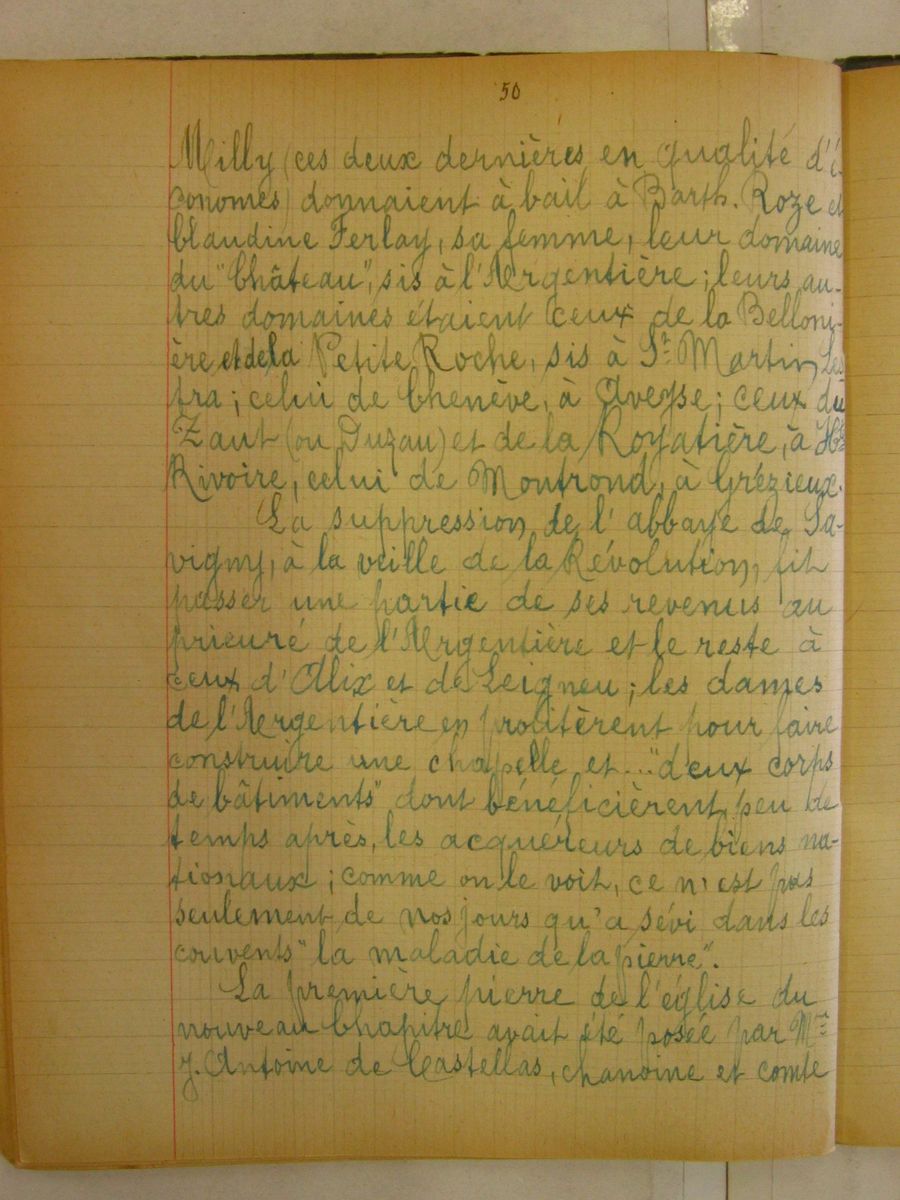 50
Milly (ces deux dernières en qualité d'é-
conomes) donnaient à bail à Barth. Roze et
Claudine Ferlay, sa femme, leur domaine
du "Château", sis à l'Argentière ; leurs au-
tres domaines étaient ceux de la Belloni-
ère et de la Petite Roche, sis à St Martin Les
tra ; celui de Chenève, à Aveyse ; ceux du
Zaut (ou Duzau) et de la Royatière, à Hte
Rivoire, celui de Montrond, à Grézieux.
La suppression de l'abbaye de Sa-
vigny, à la veille de la Révolution, fit
passer une partie de ses revenus au
prieuré de l'Argentière et le reste à
ceux d'Alix et de Leigneu ; les dames
de l'Argentière en profitèrent pour faire
construire une chapelle et ... "deux corps
de bâtiments" dont bénéficièrent, peu de
temps après, les acquéreurs de biens na-
tionaux ; comme on le voit, ce n'est pas
seulement de nos jours qu'a sévi dans les
couvents "la maladie de la pierre".
La première pierre de l'église du
nouveau Chapitre avait été posée par Mre
J. Antoine de Castellas, chanoine et comte